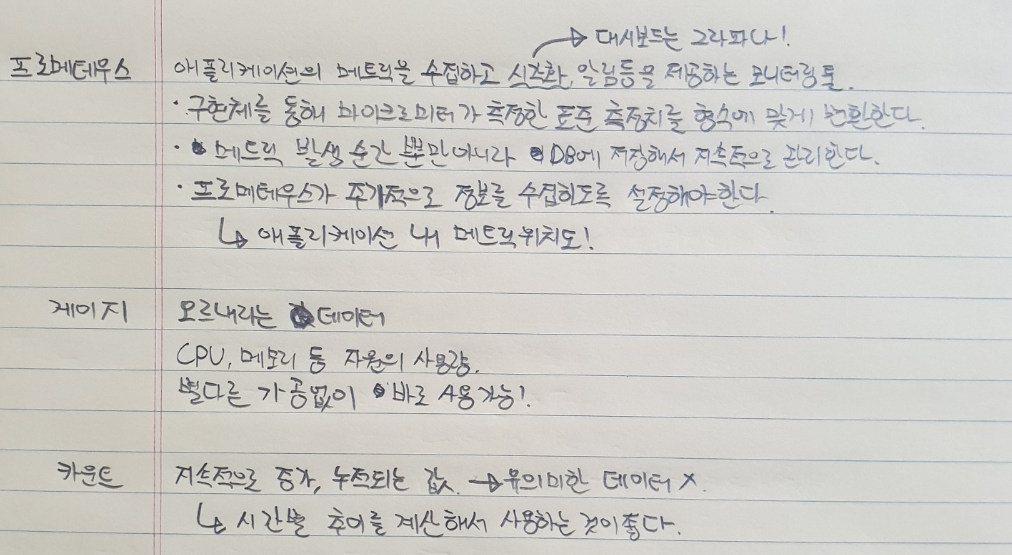 → 대시보드는 그라파나!
프로메테우스 애플리케이션의 메트릭을 수집하고 시각화, 알림등을 제공하는 모니터링 툴.
· 구현체를 통해 마이크로미터가 측정한 표준 측정치를 형식에 맞게 변환한다.
· 메트릭 발생 순간 뿐만아니라 DB에 저장해서 지속적으로 관리한다.
· 프로메테우스가 주기적으로 정보를 수집하도록 설정해야한다.
↳ 애플리케이션 내 메트릭위치도!
게이지 오르내리는 데이터
CPU, 메모리 등 자원의 사용량.
별다른 가공없이 바로 사용가능!
카운트 지속적으로 증가, 누적되는 값. → 유의미한 데이터 X.
↳ 시간별 추이를 계산해서 사용하는 것이 좋다.